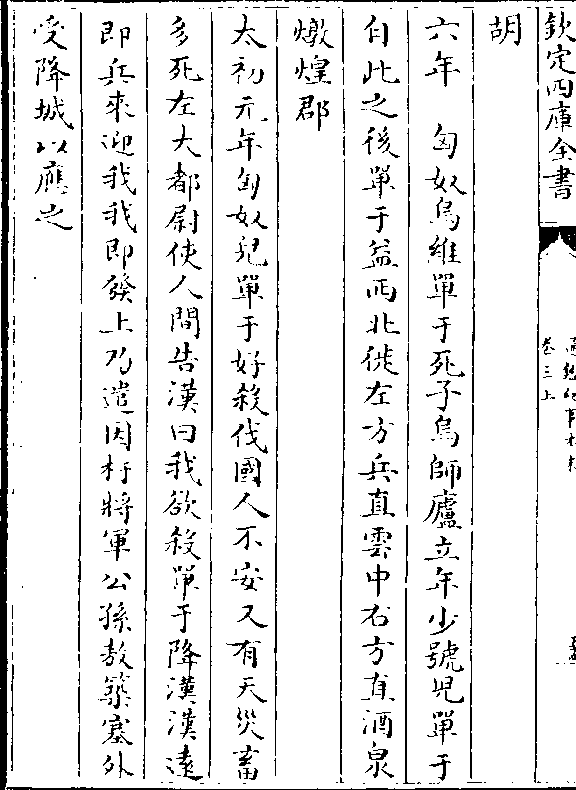 欽定四庫全書
卷三上
胡
六年　匈奴烏維單于死子烏師廬立年少號兒單于
自此之後單于益西北徙左方兵直雲中右方直酒泉
燉煌郡
太初元年匈奴兒單于好殺伐國人不安又有天災畜
多死左大都尉使人間告漢曰我欲殺單于降漢漢遠
即兵來迎我我即發上乃遣因杅將軍公孫敖築塞外
受降城以應之